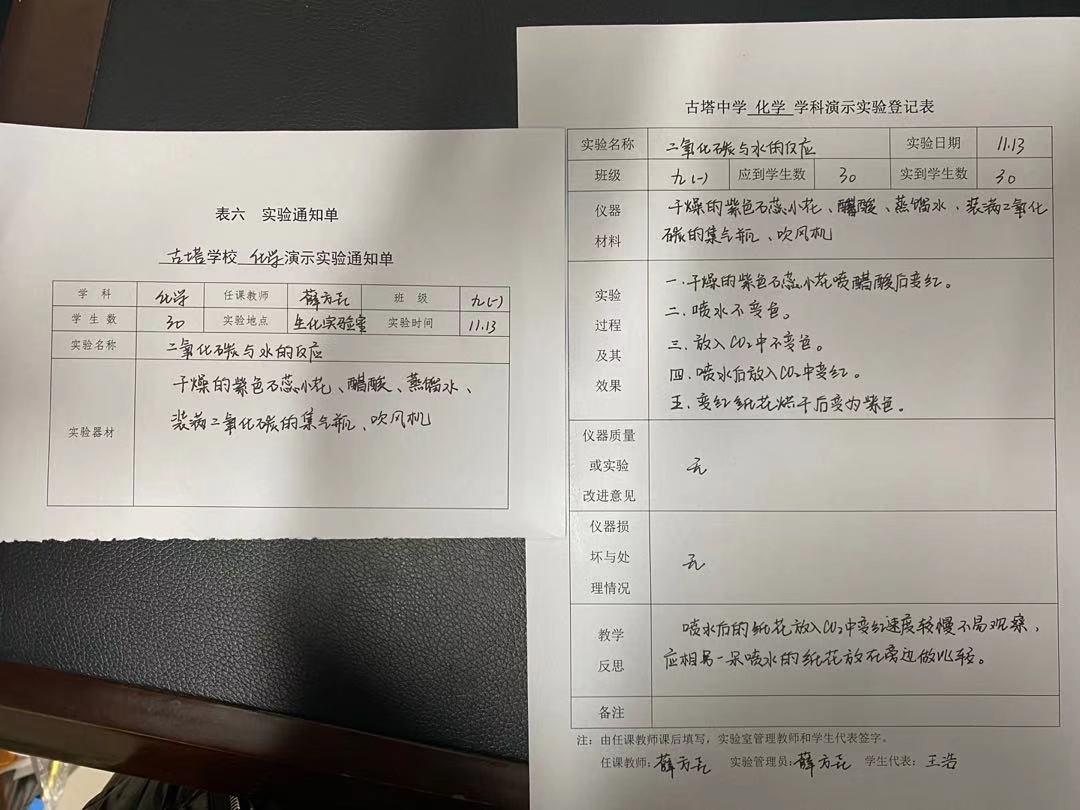 表六 实验通知单
古塔学校 化学演示实验通知单
学 科 化学 任课教师 薛方元 班 级 九(一)
学 生 数 30 实验地点 生化实验室 实验时间 11.13
实验名称 二氧化碳与水的反应
实验器材
干燥的紫色石蕊小花、醋酸、蒸馏水、
装满二氧化碳的集气瓶、吹风机
古塔中学 化学 学科演示实验登记表
实验名称 二氧化碳与水的反应 实验日期 11.13
班级 九(一) 应到学生数 30 实到学生数 30
仪器
材料
干燥的紫色石蕊小花、醋酸、蒸馏水、装满二氧化
碳的集气瓶、吹风机
实验
过程
及其
效果
一.干燥的紫色石蕊小花喷醋酸后变红。
二.喷水不变色。
三.放入CO2中不变色。
四.喷水后放入CO2中变红。
五.变红纸花烘干后变为紫色。
仪器质量
或实验
改进意见
无
仪器损
坏与处
理情况
无
教学
反思
喷水后的纸花放入CO2中变红速度较慢不易观察,
应相另一朵喷水的纸花放在旁边做比较。
备注
注:由任课教师课后填写,实验室管理教师和学生代表签字。
任课教师:薛方元 实验管理员:薛方元 学生代表:王浩